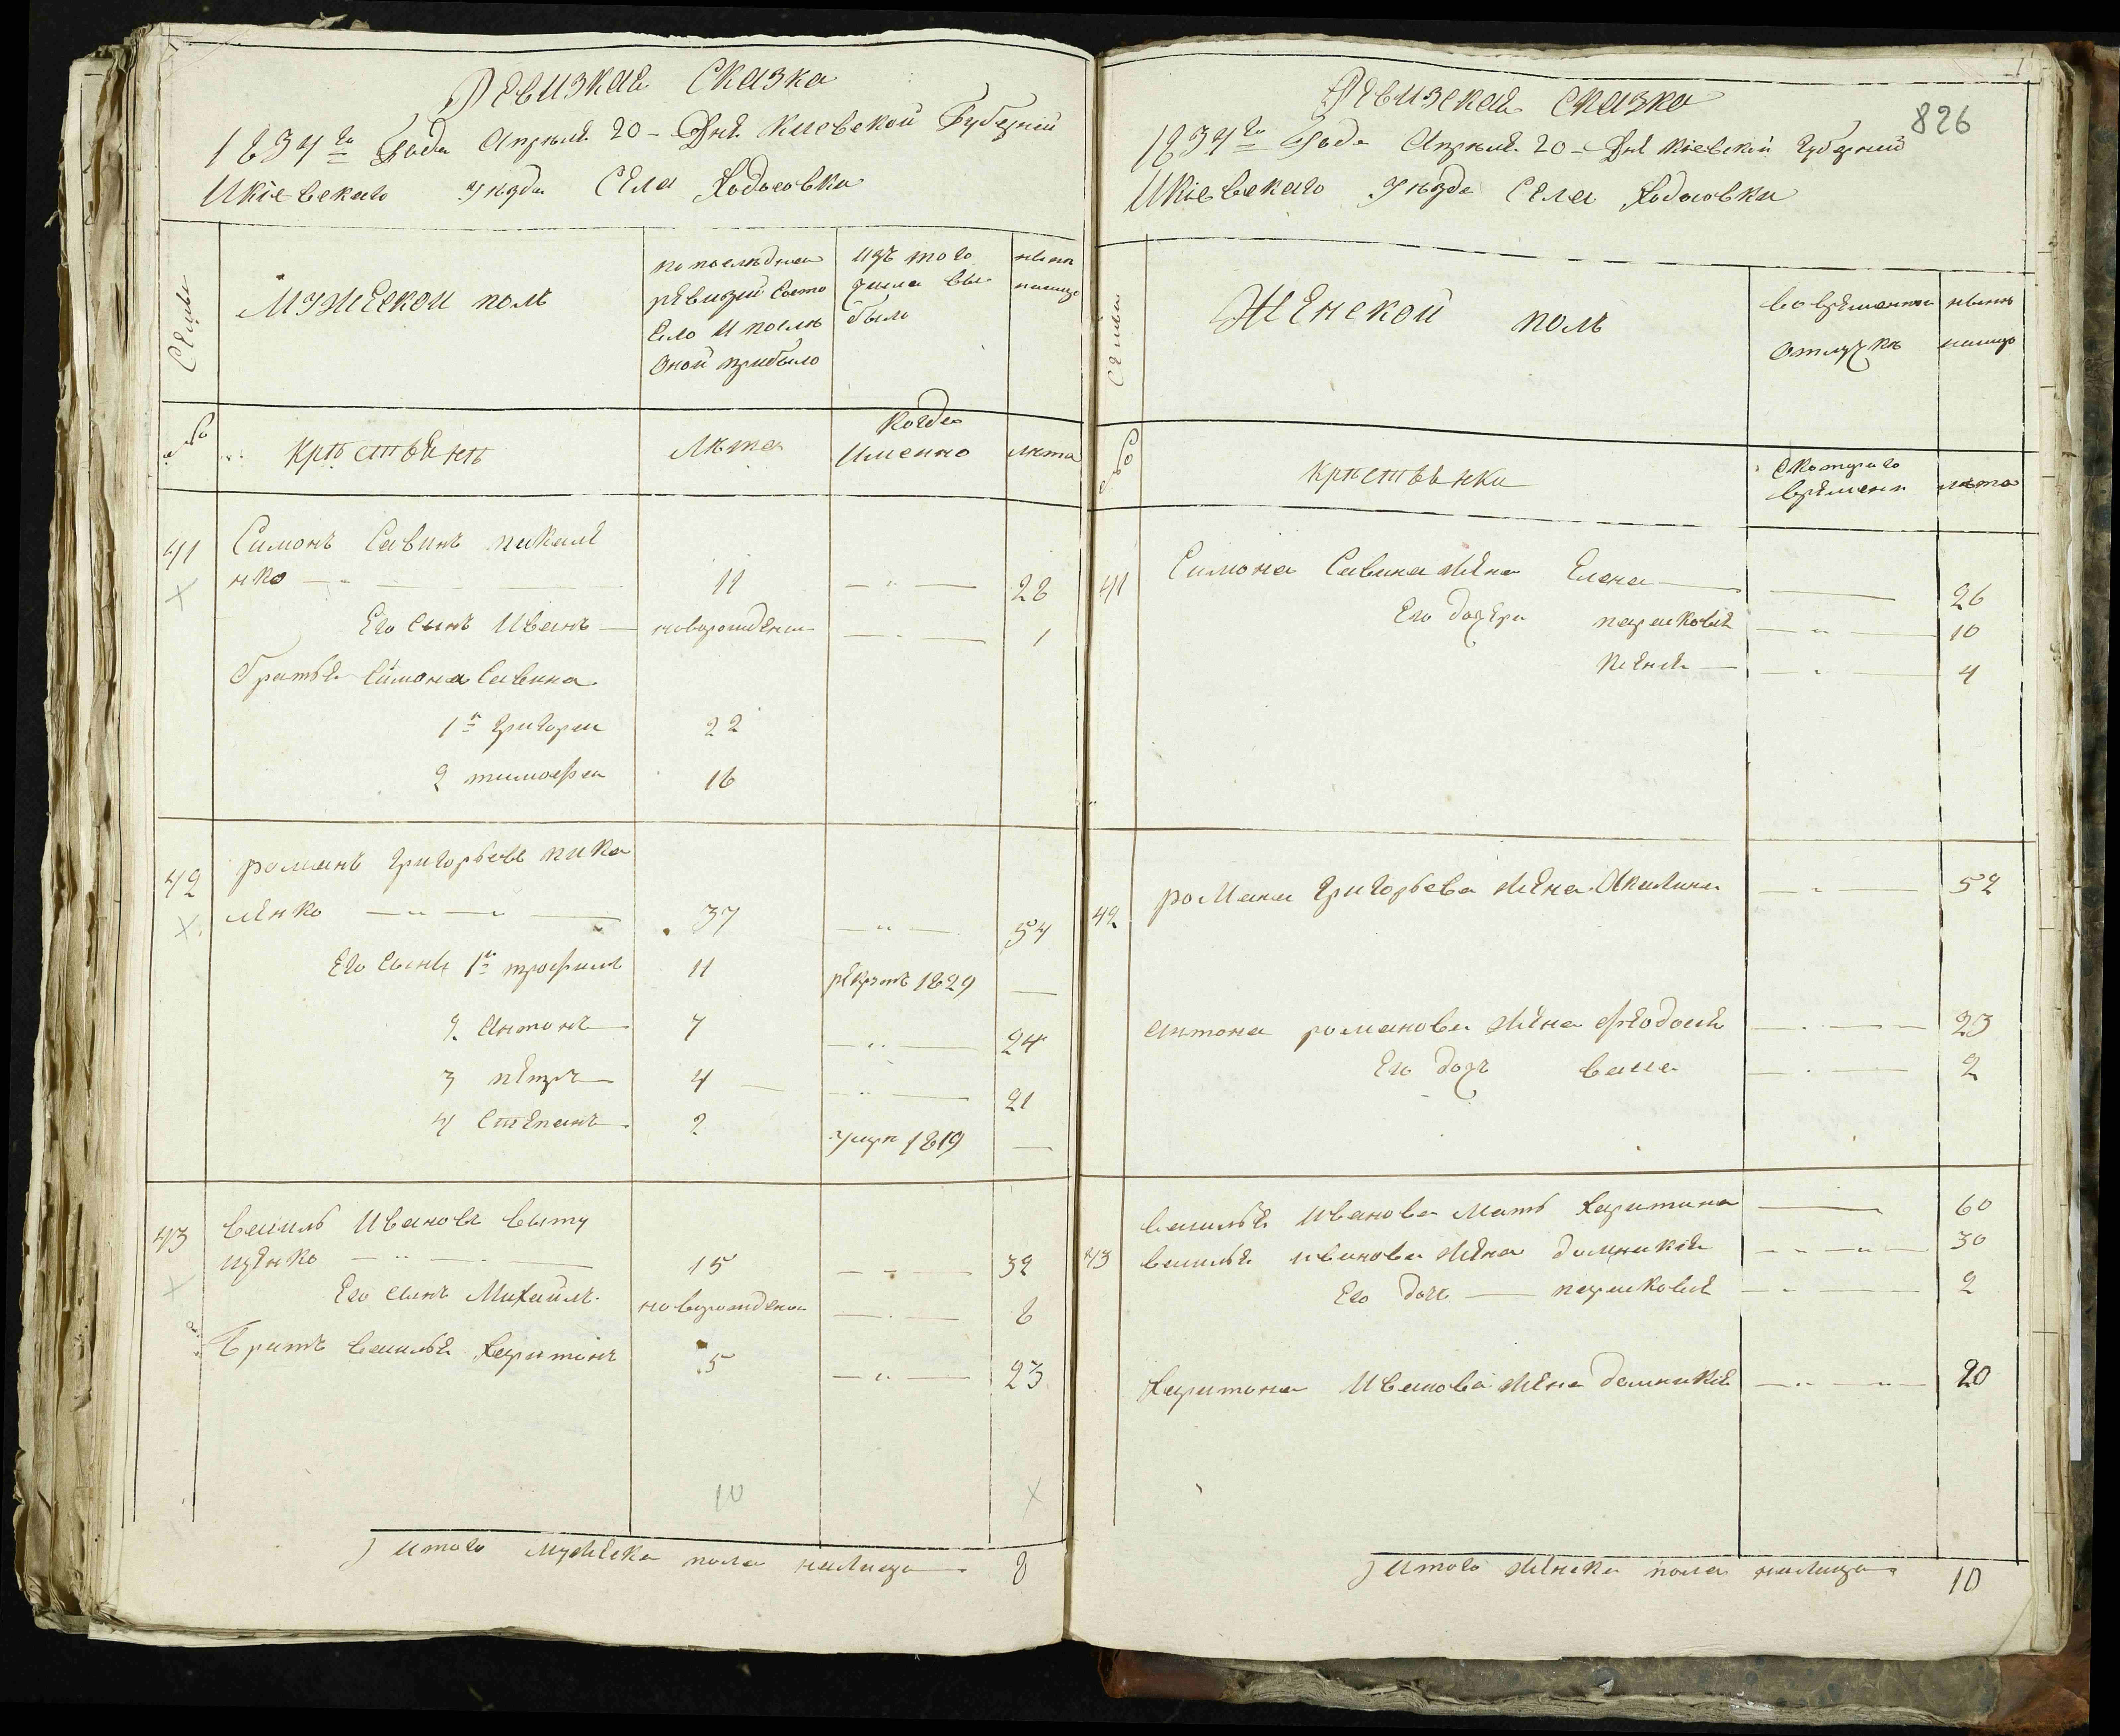 Ревизкая Сказка
1834го Года Апреля 20 - Дня Киевской Губерний
И Кіевскаго Уезда Села Ходосовки
Семьи
Мужескои полъ
по последнеи
ревизіи состо
ело и после
оной прибыло
изъ того
числа вы
было
ныне
налицо
№
крестьяне
Лета
когда
Именно
лета
41
Симонъ Савинъ пикале
нко
11
28
Его сынъ Иванъ
новорожденъ
1
братья Симона Савина
1й григореи
22
2 тимофеи
16
42
романъ григорьевъ пика
ленко
37
54
Его сыны 1й трофимъ
11
рекрутъ 1829
2 Антонъ
7
24
3 петръ
4
21
4 Степанъ
2
умре 1819
43
василь Ивановъ выту
щенко
15
32
Его сынъ Михаилъ
новорожденъ
8
братъ василья харитонъ
5
23
10
Итого мужеска пола налицо 8
826
Ревизская сказка
1834го Года Апреля 20 - Дня Кіевской губерний
И Кіевскаго Уезда Села Ходосовки
Семьи
Женской полъ
во временной
отлучке
ныне
налицо
№
крестьянки
с котораго
времени
лета
41
Симона Савина жена Елена
26
Его дочери парасковія
10
ксенія
4
42
романа григорьева жена Акилина
52
антона романова жена феодосія
23
Его дочь васса
2
43
василья иванова мать харитина
60
василья иванова жена домникія
30
Его дочь парасковія
2
харитона Иванова жена домникія
20
Итого женска пола налицо 10